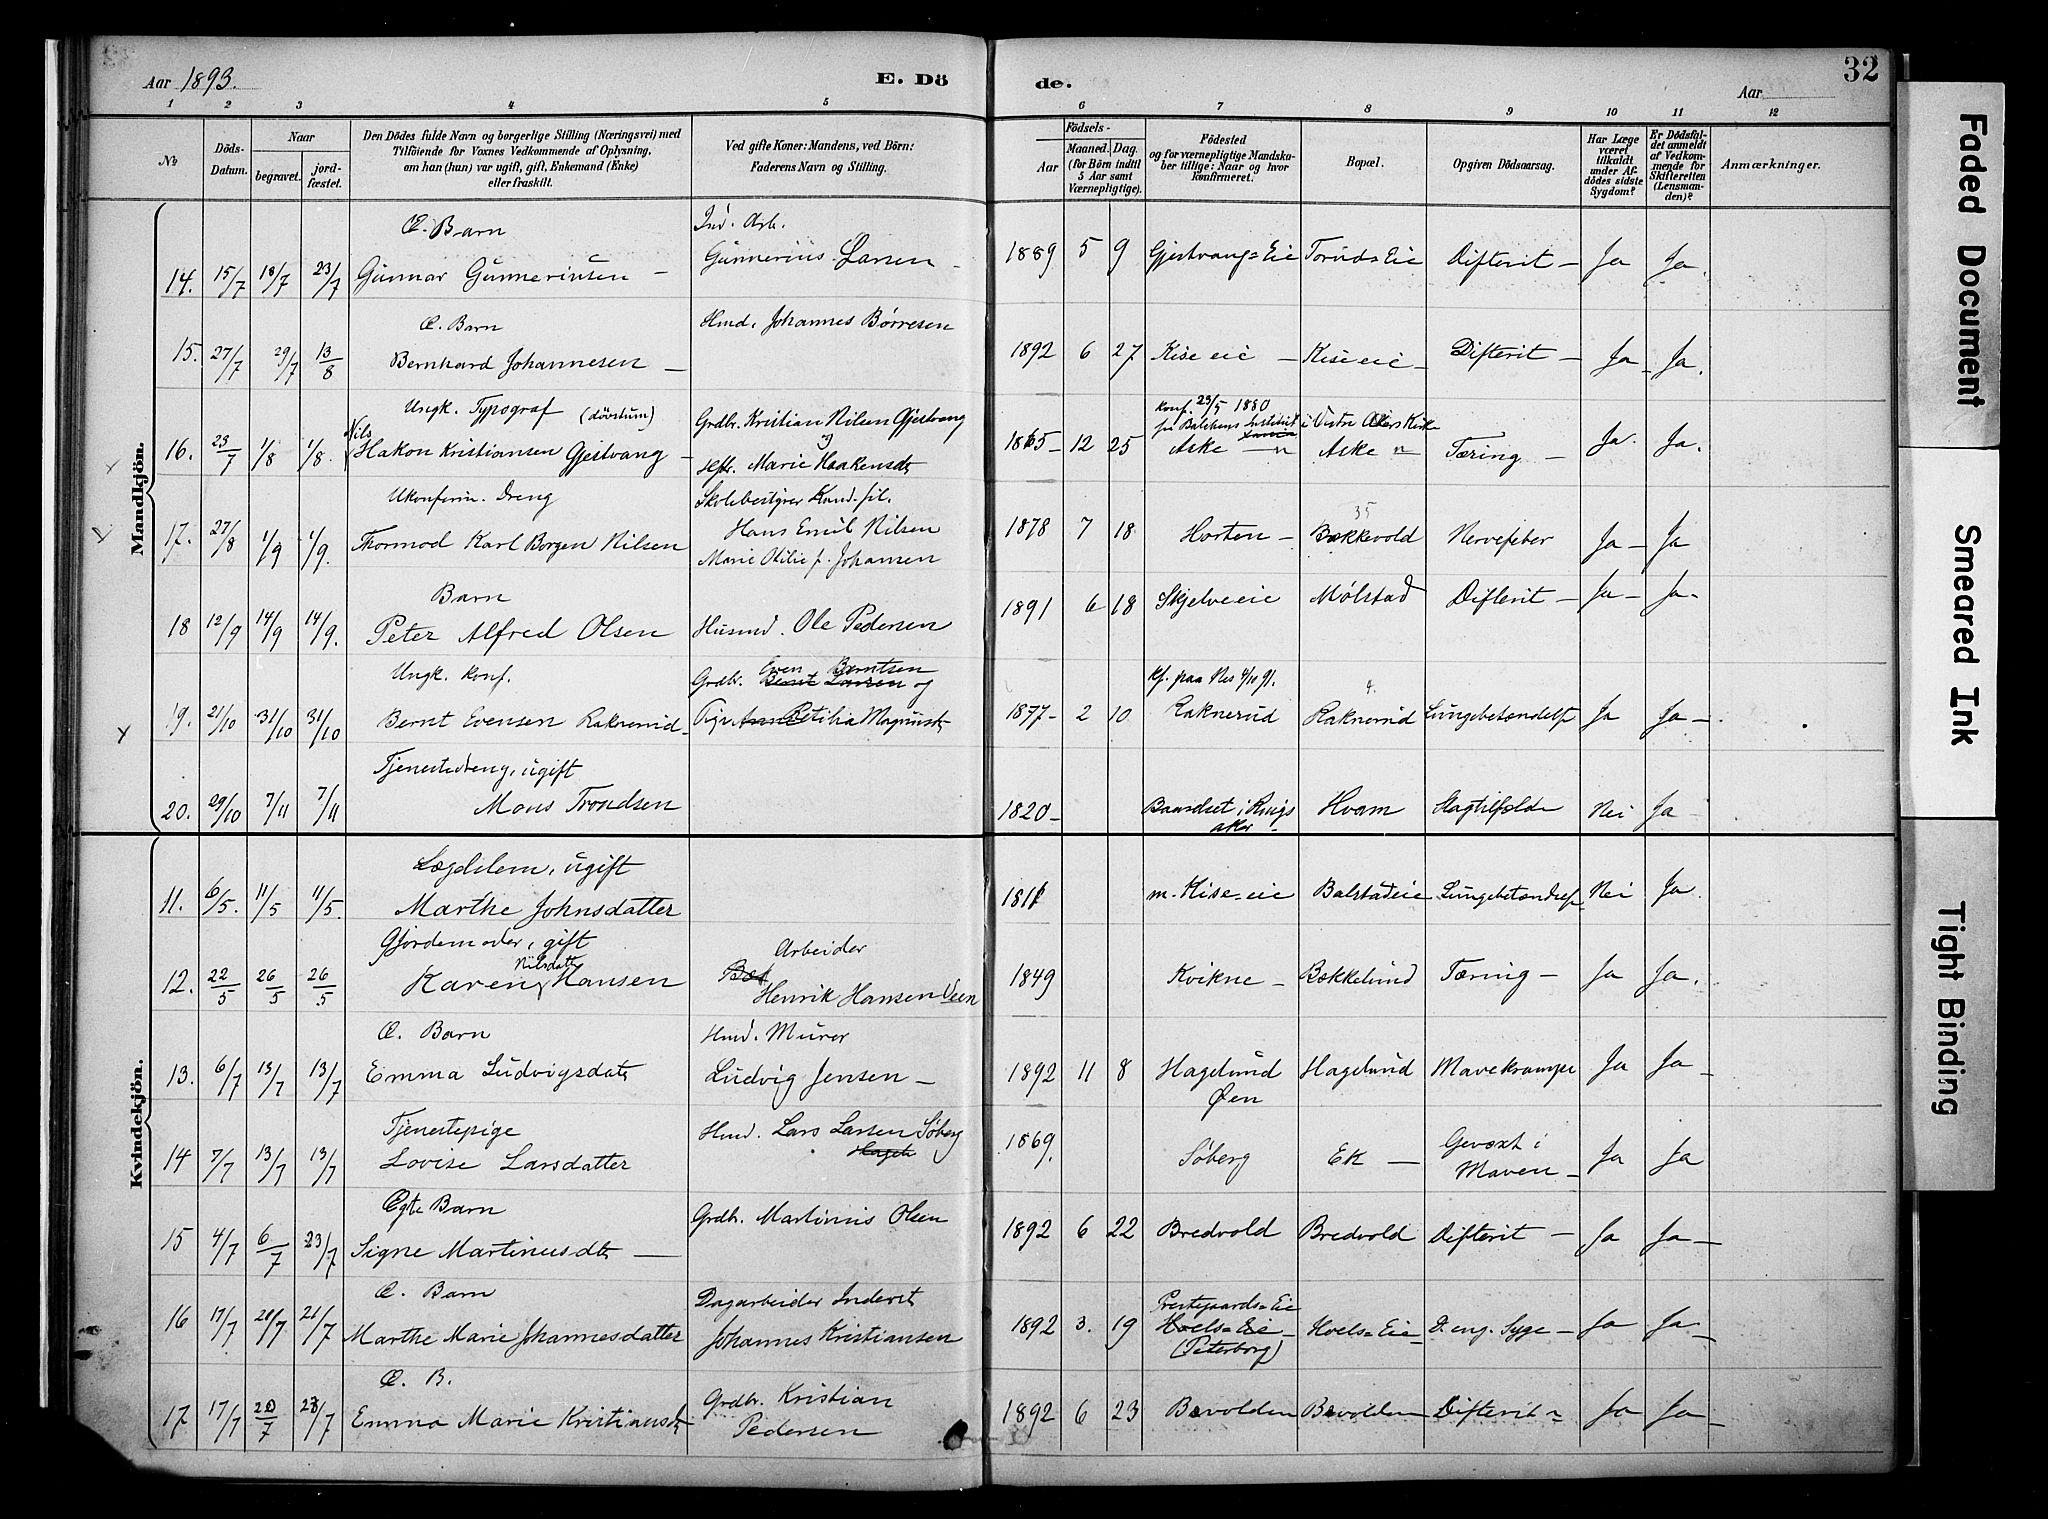 Aar 1893. E. Dö de. Aar 32
1 2 3 4 5 6 7 8 9 10 11 12
No Döds-Datum. Naar begravet. jordfæstet. Den Dödes fulde Navn og borgerlige Stilling (Næringsvei) med Tilföiende for Voxnes Vedkommende af Oplysning, om han (hun) var ugift, gift, Enkemand (Enke) eller fraskilt. Ved gifte Koner: Mandens, ved Börn: Faderens Navn og Stilling. Födsels- Aar Maaned. Dag. (for Börn indtil 5 Aar samt Værnepligtige). Födested og for værnepligtige Mandskaber tillige: Naar og hvor konfirmeret. Bopæl. Opgiven Dödsaarsag. Har Læge været tilkaldt under Afdödes sidste Sygdom? Er Dödsfaldet anmeldt af Vedkommende for Skifteretten (Lensmanden)? Anmærkninger.
Mandkjön.
Æ. Barn Ind. Arb.
14. 15/7 18/7 23/7 Gunnar Gunneriusen – Gunnerius Larsen – 1889 5 9 Gjestvang=Eie Toruds Eie Difterit – Ja Ja.
Æ. Barn Hmd. Johannes Börresen
15. 27/7 29/7 13/8 Bernhard Johannesen – 1892 6 27 Kise eie – Kise eie – Difterit – Ja – Ja.
Ungk. Typograf (dövstum) Grdbr. Kristian Nilsen Gjestvang Konf. 23/5 1880
fra Balchens Institut i Vestre Akers Kirke
16. 23/7 1/8 1/8. Nils Hakon Kristiansen Gjestvang – og 1865 – 12 25 Aske – Aske Tæring – Ja. Ja.
Marie Haakensdt
Ukonfirm. Dreng Skolebestyrer
17. 27/8 1/9 1/9. Thormod Karl Borgen Nilsen Hans Emil Nilsen 1878 7 18 Horten – Bækkevold 35 Nervefeber Ja – Ja
Marie Otilie f. Johansen
Barn
18 12/9 14/9 14/9. Peter Alfred Olsen Husmd. Ole Pedersen 1891 6 18 Skjelve eie Mølstad Difterit – Ja – Ja –
Ungk. konf. Grdbr. Even Berntsen Bernt Larsen og Kf. paa Nes 4/10 91.
19. 21/10 31/10 31/10 Bernt Evensen Raknerud – Petilia Magnusdt 1877 – 2 10 Raknerud Raknerud 4. Lungebetændelse Ja Ja –
Tjenestedreng, ugift
20. 29/10 7/11 7/11 Mons Trondsen 1820 – Baardset i Ringsaker – Hvam Slagtilfælde Nei Ja
Kvindekjön.
Lægdelem, ugift
11. 6/5. 11/5 11/5. Marthe Johnsdatter 1811 m. Kise=eie Balstadeie Lungebetændelse Nei Ja.
Gjordemoder, gift Arbeider
12. 22/5 26/5 26/5 Karen Nilsdatt Hansen Henrik Hansen Veen 1849 Kvikne – Bækkelund Tæring – Ja Ja.
Æ. Barn Hmd. Murer
13. 6/7 13/7 13/7 Emma Ludvigsdatt Ludvig Jensen – 1892 11 8 Hagelund Øen Hagelund Mavekrampe Ja Ja –
Tjenestepige Hmd. Lars Larsen Söberg
14 7/7 13/7 13/7 Lovise Larsdatter 1869. Söberg Ek – Gevæxt i Maven – Ja Ja
Ægte Barn Grdbr. Martinus Olsen
15 4/7 6/7 23/7 Signe Martinusdt – 1892 6 22 Bredvold Bredvold Difterit – Ja Ja –
Æ. Barn Dagarbeider Inderst Prestegaards=Eie
16 17/7 20/7 21/7 Marthe Marie Johannesdatter Johannes Kristiansen 1892 3. 19 Hoels=Eie – (Peterborg) Hoels=Eie – D. eng. Syge – Ja Ja –
Æ. B. Grdbr. Kristian
17 17/7 20/7 23/7 Emma Marie Kristiansdt Pedersen 1892 6 23 Bevolden Bevolden Difterit Ja Ja –
Faded Document
Smeared Ink
Tight Binding